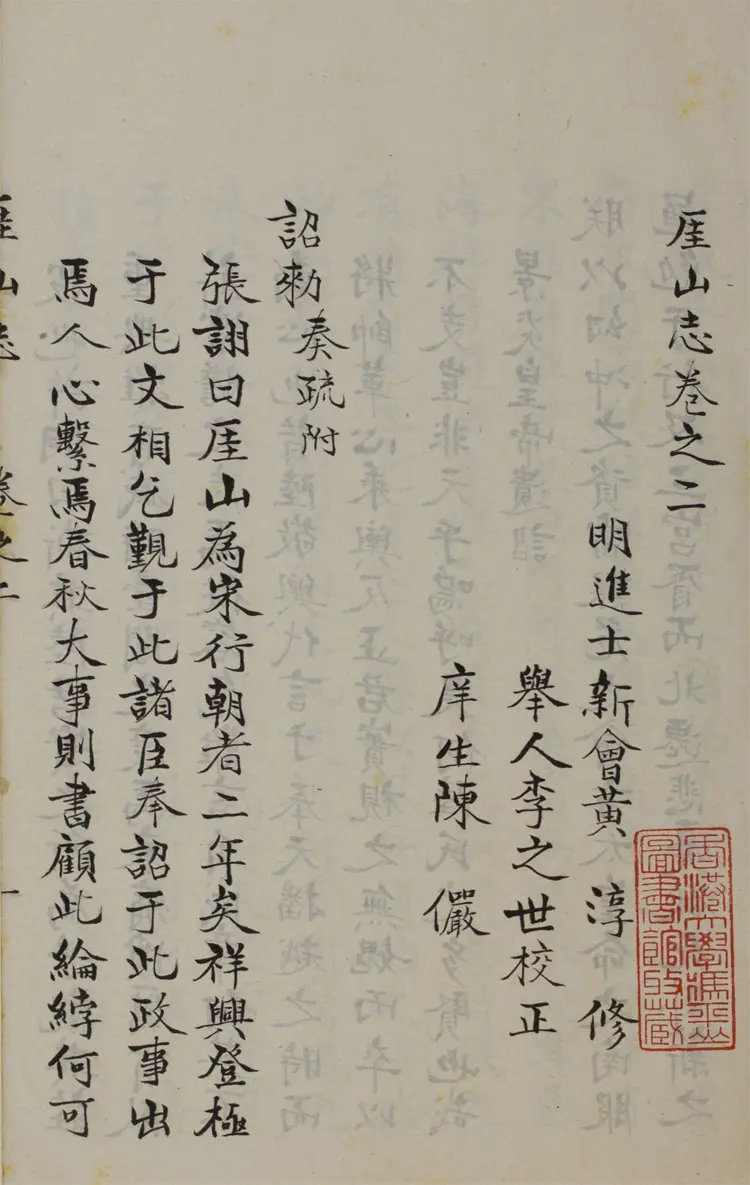 厓山志卷之二
明進士新會黃　淳　修
舉人李之世校正
庠生陳　儼
詔勑奏疏附
張詡曰厓山為宋行朝者二年矣祥興登極
于此文相乞覲于此諸臣奉詔于此政事出
焉人心繫焉春秋大事則書顧此綸綍何可
厓山志　卷之二　一
香港大學馮平山
圖書館收藏